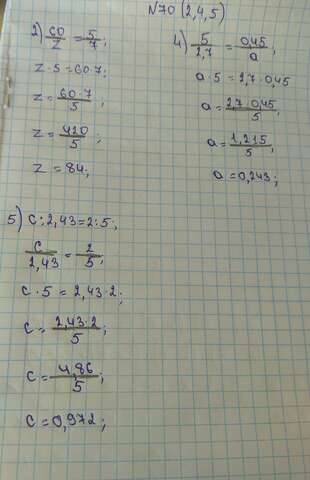 №70 (2,4,5)
2) 60/z = 5/7;
z · 5 = 60 · 7;
z = 60 · 7/5;
z = 420/5;
z = 84;
4) 5/2,7 = 0,45/a;
a · 5 = 2,7 · 0,45
a = 2,7 · 0,45/5;
a = 1,215/5;
a = 0,243;
5) c : 2,43 = 2 : 5;
c/2,43 = 2/5;
c · 5 = 2,43 · 2;
c = 2,43 · 2/5;
c = 4,86/5;
c = 0,972;